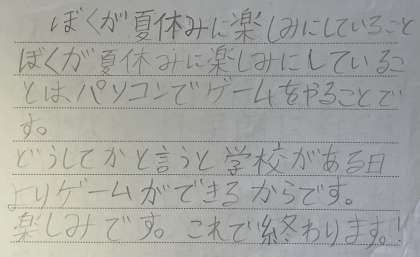 ぼくが夏休みに楽しみにしていること
ぼくが夏休みに楽しみにしているこ
とはパソコンでゲームをやることで
す。
どうしてかと言うと学校がある日
よりゲームができるからです。
楽しみです。これで終わります。!